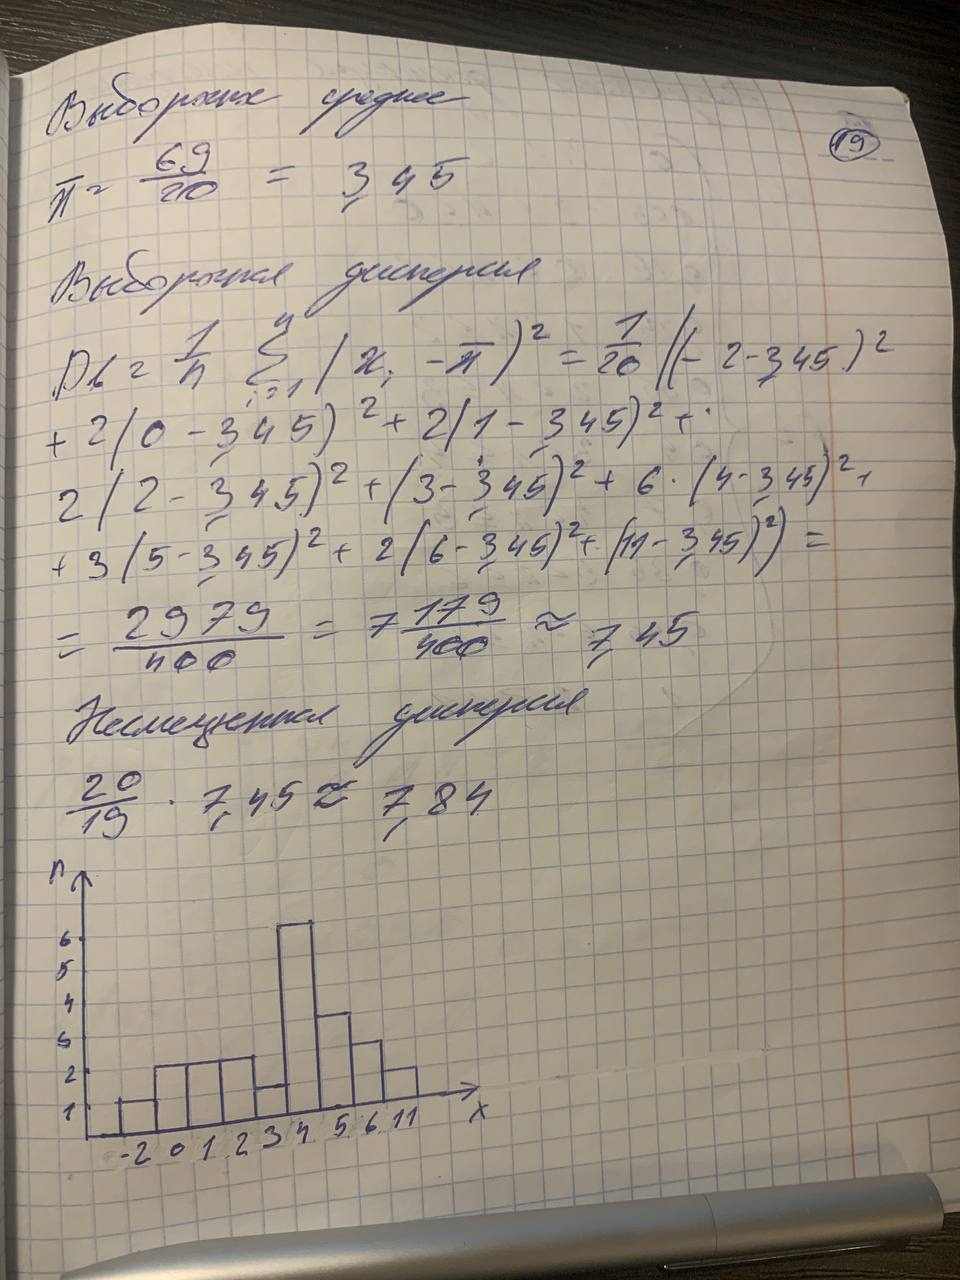 Выборочное среднее
19
x̄ = 69/20 = 3,45
Выборочная дисперсия
Dв = 1/n n∑i=1 (xi - x̄)² = 1/20 ((-2-3,45)²
+ 2(0 - 3,45)² + 2(1 - 3,45)² +
2(2 - 3,45)² + (3 - 3,45)² + 6 · (4-3,45)² +
+ 3(5-3,45)² + 2(6-3,45)² + (11-3,45)²) =
= 2979/400 = 7 179/400 ≈ 7,45
Несмещенная дисперсия
20/19 · 7,45 ≈ 7,84
n
6
5
4
3
2
1
-2 0 1 2 3 4 5 6 11
x